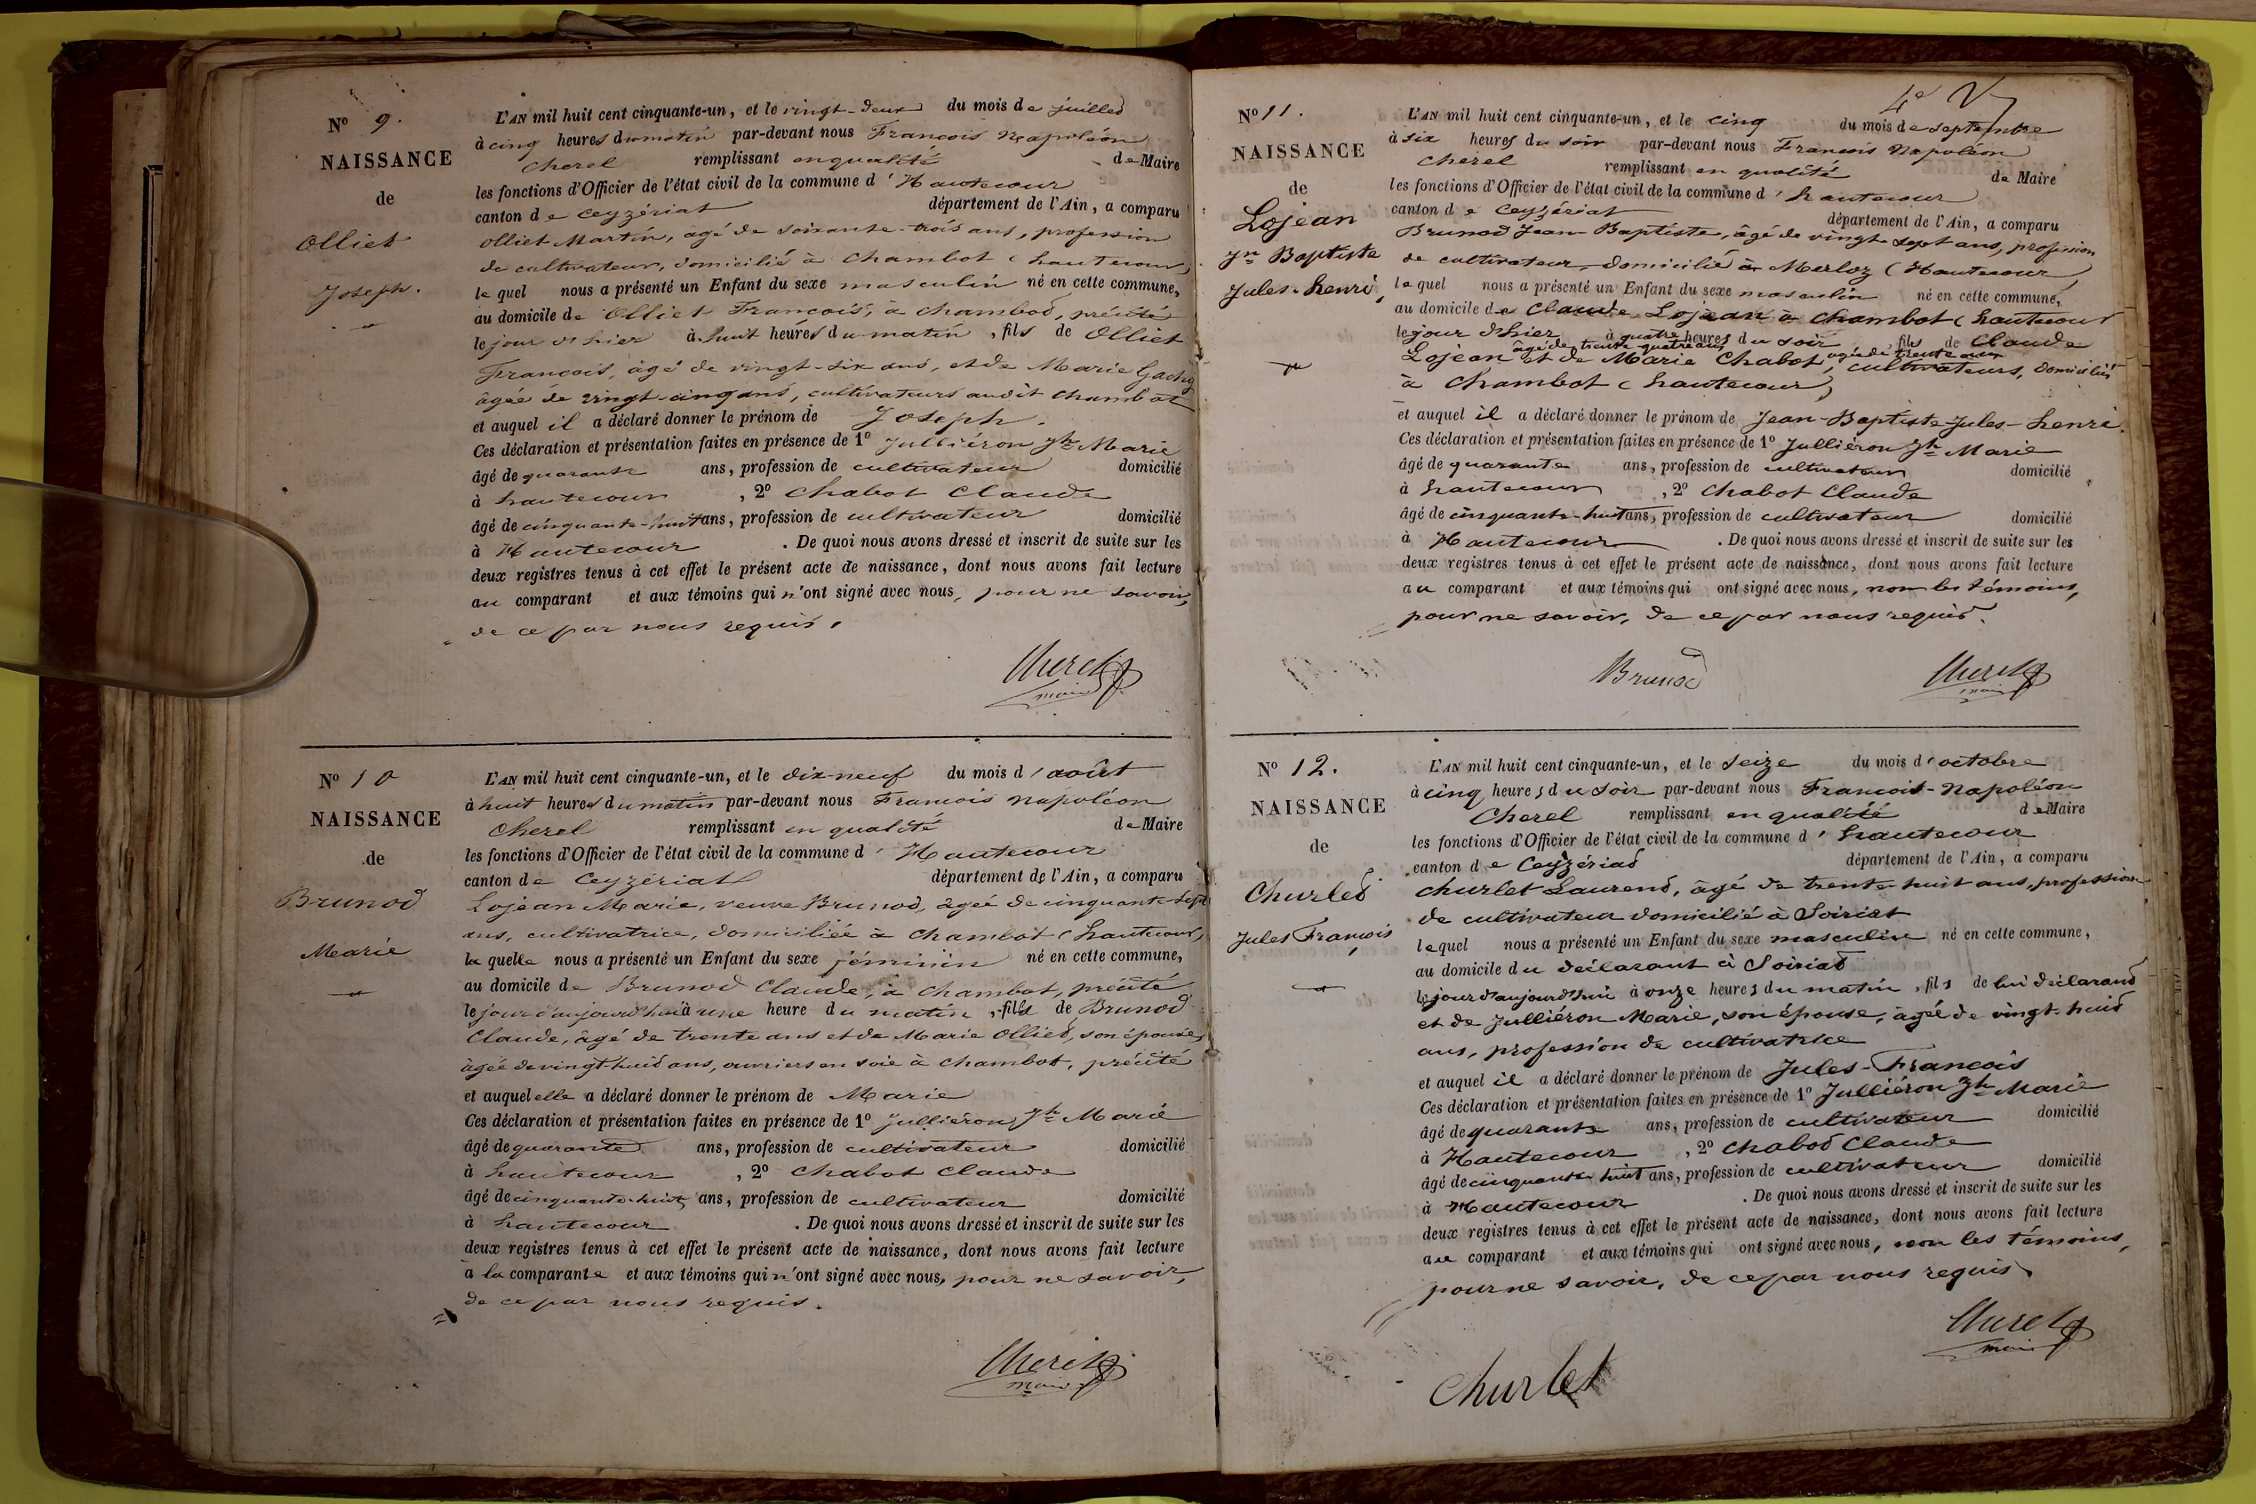 N° 9.
NAISSANCE
de
Olliet
Joseph.
L'AN mil huit cent cinquante-un, et le vingt-deux du mois de juillet
à cinq heures du matin par-devant nous François Napoléon
Cherel remplissant en qualité de Maire
les fonctions d'Officier de l'état civil de la commune d'Hautecour
canton de Ceyzériat département de l'Ain, a comparu
Olliet Martin, âgé de soixante-trois ans, profession
de cultivateur, domicilié à Chambot (hautecour)
lequel nous a présenté un Enfant du sexe masculin né en cette commune,
au domicile de Olliet François, à Chambod, précité
le jour d'hier à huit heures du matin, fils de Olliet
François, âgé de vingt-six ans, et de Marie Gachy
âgée de vingt-cinq ans, cultivateurs audit Chambot
et auquel il a déclaré donner le prénom de Joseph.
Ces déclaration et présentation faites en présence de 1° Julliéron Jh Marie
âgé de quarante ans, profession de cultivateur domicilié
à hautecour, 2° Chabot Claude
âgé de cinquante-huit ans, profession de cultivateur domicilié
à Hautecour. De quoi nous avons dressé et inscrit de suite sur les
deux registres tenus à cet effet le présent acte de naissance, dont nous avons fait lecture
au comparant et aux témoins qui n'ont signé avec nous, pour ne savoir,
de ce par nous requis.
Cherel
maire
N° 10
NAISSANCE
de
Brunod
Marie
L'AN mil huit cent cinquante-un, et le dix-neuf du mois d'août
à huit heures du matin par-devant nous François Napoléon
Cherel remplissant en qualité de Maire
les fonctions d'Officier de l'état civil de la commune d'Hautecour
canton de Ceyzériat département de l'Ain, a comparu
Lojean Marie, veuve Brunod, âgée de cinquante-sept
ans, cultivatrice, domiciliée à Chambot (hautecour)
laquelle nous a présenté un Enfant du sexe féminin né en cette commune,
au domicile de Brunod Claude, à Chambot, précité
le jour d'aujourd'hui à une heure du matin, fille de Brunod
Claude, âgé de trente ans et de Marie Ollied, son épouse,
âgée de vingt-huit ans, ouvriers en soie à Chambot, précité
et auquel elle a déclaré donner le prénom de Marie
Ces déclaration et présentation faites en présence de 1° Julliéron Jh Marie
âgé de quarante ans, profession de cultivateur domicilié
à hautecour, 2° Chabot Claude
âgé de cinquante-huit ans, profession de cultivateur domicilié
à hautecour. De quoi nous avons dressé et inscrit de suite sur les
deux registres tenus à cet effet le présent acte de naissance, dont nous avons fait lecture
à la comparante et aux témoins qui n'ont signé avec nous, pour ne savoir,
de ce par nous requis.
Cherel
maire
4e
N° 11.
NAISSANCE
de
Lojean
Jn Baptiste
Jules-henri,
L'AN mil huit cent cinquante-un, et le cinq du mois de septembre
à six heures du soir par-devant nous François Napoléon
Cherel remplissant en qualité de Maire
les fonctions d'Officier de l'état civil de la commune d'hautecour
canton de Ceyzériat département de l'Ain, a comparu
Brunod Jean-Baptiste, âgé de vingt-sept ans, profession
de cultivateur, domicilié à Merloz (Hautecour)
lequel nous a présenté un Enfant du sexe masculin né en cette commune,
au domicile de Claude Lojean à Chambot (hautecour
le jour d'hier à quatre heures du soir fils de Claude
âgé de trente quatre ans âgée de trente ans
Lojean et de Marie Chabot, cultivateurs, domiciliés
à Chambot (hautecour)
et auquel il a déclaré donner le prénom de Jean-Baptiste-Jules-henri.
Ces déclaration et présentation faites en présence de 1° Julliéron Jh Marie
âgé de quarante ans, profession de cultivateur domicilié
à hautecour, 2° Chabot Claude
âgé de cinquante-huit ans, profession de cultivateur domicilié
à Hautecour. De quoi nous avons dressé et inscrit de suite sur les
deux registres tenus à cet effet le présent acte de naissance, dont nous avons fait lecture
au comparant et aux témoins qui ont signé avec nous, non les témoins,
pour ne savoir, de ce par nous requis.
Brunod
Cherel
maire
N° 12.
NAISSANCE
de
Churled
Jules François,
L'AN mil huit cent cinquante-un, et le seize du mois d'octobre
à cinq heures du soir par-devant nous François-Napoléon
Cherel remplissant en qualité de Maire
les fonctions d'Officier de l'état civil de la commune d'hautecour
canton de Ceyzériat département de l'Ain, a comparu
Churlet Laurend, âgé de trente-huit ans, profession
de cultivateur domicilié à Soiriat
lequel nous a présenté un Enfant du sexe masculin né en cette commune,
au domicile du déclarant à Soiriat
le jour d'aujourd'hui à onze heures du matin, fils de lui déclarant
et de Julliéron Marie, son épouse, âgée de vingt-huit
ans, profession de cultivatrice
et auquel il a déclaré donner le prénom de Jules-François
Ces déclaration et présentation faites en présence de 1° Julliéron Jh Marie
âgé de quarante ans, profession de cultivateur domicilié
à Hautecour, 2° Chabod Claude
âgé de cinquante huit ans, profession de cultivateur domicilié
à Hautecour. De quoi nous avons dressé et inscrit de suite sur les
deux registres tenus à cet effet le présent acte de naissance, dont nous avons fait lecture
au comparant et aux témoins qui ont signé avec nous, non les témoins,
pour ne savoir, de ce par nous requis.
Cherel
maire
Churlet